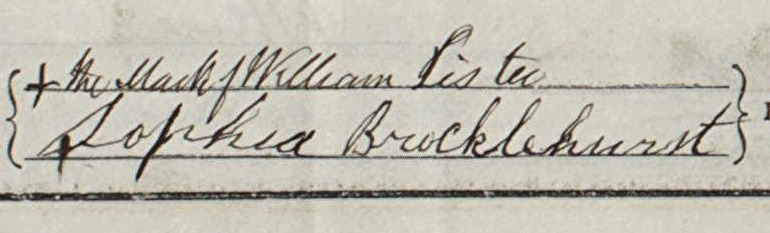 + the Mark of William Lister
Sophia Brocklehurst